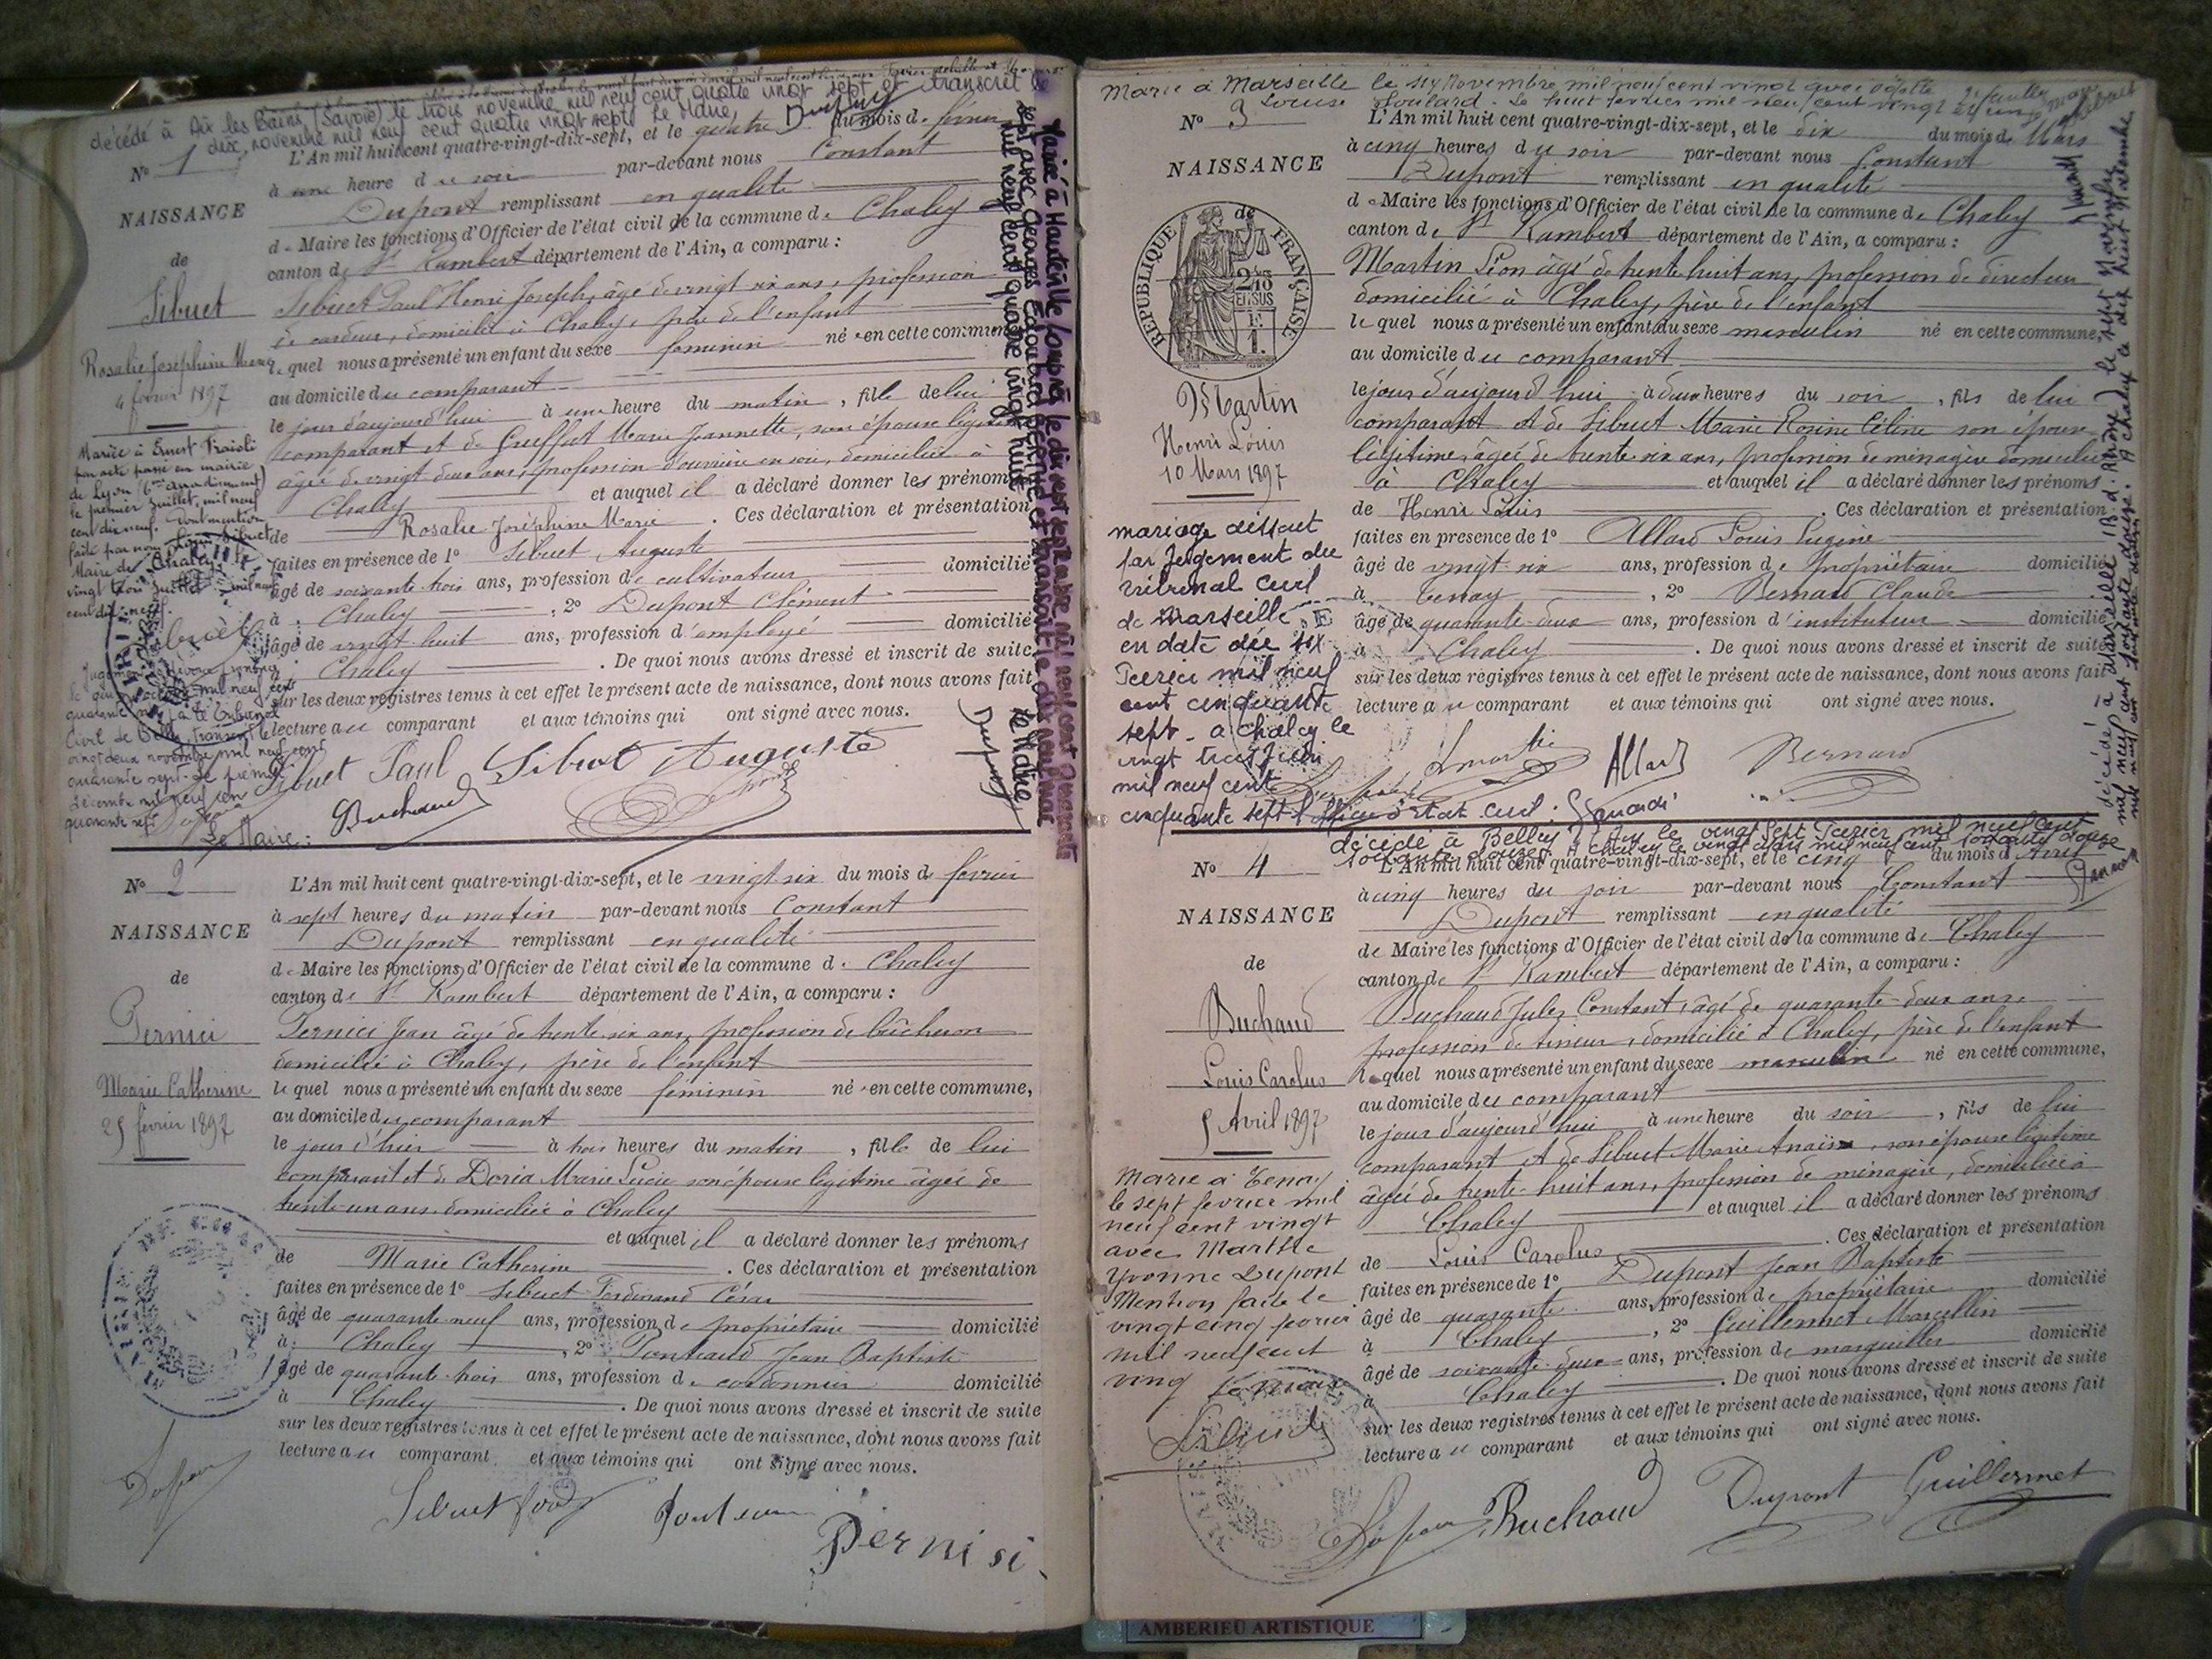 décédé à Aix les Bains (Savoie) le trois novembre mil neuf cent quatre vingt sept et transcrit le
dix novembre mil neuf cent quatre vingt sept. Le Maire,
No 1
NAISSANCE
de
Sibuet
Rosalie Joséphine Marie
4 février 1897
Mariée à Ernest Fraioli
par acte passé en mairie
de Lyon (6me arrondissement)
le premier Juillet, mil neuf
cent dix neuf. Dont mention
faite par nous Louis Sibuet
Maire de Chaley, le
vingt trois Juillet mil neuf
cent dix-neuf.
Sibuet
Jugement de divorce
mil neuf cent
quarante par le Tribunal
Civil de Belley, transcrit le
vingt deux novembre mil neuf cent
quarante sept. Le premier
décembre mil neuf cent
quarante sept
Le Maire :
L'An mil huit cent quatre-vingt-dix-sept, et le quatre du mois de février
à une heure du soir par-devant nous Constant
Dupont remplissant en qualité
de Maire les fonctions d'Officier de l'état civil de la commune de Chaley
canton de St Rambert département de l'Ain, a comparu :
Sibuet Paul Henri Joseph, âgé de vingt six ans, profession
de cardeur, domicilié à Chaley, père de l'enfant
lequel nous a présenté un enfant du sexe féminin né e en cette commune,
au domicile du comparant
le jour d'aujourd'hui à une heure du matin, fille de lui
comparant et de Gueffat Marie Jeannette, son épouse légitime
âgée de vingt deux ans, profession d'ouvrière en soie, domiciliée à
Chaley et auquel il a déclaré donner les prénoms
de Rosalie Joséphine Marie. Ces déclaration et présentation
faites en présence de 1o Sibuet Auguste
âgé de soixante trois ans, profession de cultivateur domicilié
à Chaley, 2o Dupont Clément
âgé de vingt huit ans, profession d'employé domicilié
à Chaley. De quoi nous avons dressé et inscrit de suite
sur les deux registres tenus à cet effet le présent acte de naissance, dont nous avons fait
lecture au comparant et aux témoins qui ont signé avec nous.
Sibuet Paul Sibuet Auguste
Mariée à Hauteville Lompnès le dix sept septembre mil neuf cent quarante
sept avec Georges Edouard et transcrit le dix neuf mai
mil neuf cent quatre vingt huit
Le Maire
Dupuy
No 2
NAISSANCE
de
Pernici
Marie Catherine
25 février 1897
L'An mil huit cent quatre-vingt-dix-sept, et le vingt six du mois de février
à sept heures du matin par-devant nous Constant
Dupont remplissant en qualité
de Maire les fonctions d'Officier de l'état civil de la commune de Chaley
canton de St Rambert département de l'Ain, a comparu :
Pernici Jean âgé de trente six ans, profession de bûcheron
domicilié à Chaley, père de l'enfant
lequel nous a présenté un enfant du sexe féminin né e en cette commune,
au domicile du comparant
le jour d'hier à trois heures du matin, fille de lui
comparant et de Doria Marie Lucie son épouse légitime âgée de
trente un ans domiciliée à Chaley
et auquel il a déclaré donner les prénoms
de Marie Catherine. Ces déclaration et présentation
faites en présence de 1o Sibuet Ferdinand César
âgé de quarante neuf ans, profession de propriétaire domicilié
à Chaley, 2o Ponteaud Jean Baptiste
âgé de quarante trois ans, profession de cordonnier domicilié
à Chaley. De quoi nous avons dressé et inscrit de suite
sur les deux registres tenus à cet effet le présent acte de naissance, dont nous avons fait
lecture au comparant et aux témoins qui ont signé avec nous.
Sibuet ferd
Pernisi
Marié à Marseille le six Novembre mil neuf cent vingt avec
Louise Foulard. Le huit février mil neuf cent vingt
No 3
NAISSANCE
RÉPUBLIQUE FRANÇAISE
Martin
Henri Louis
10 Mars 1897
mariage dissout
par Jugement du
tribunal civil
de Marseille
en date du six
Février mil neuf
cent cinquante
sept. a Chaley le
vingt trois Juin
mil neuf cent
cinquante sept l'officier d'Etat Civil :
L'An mil huit cent quatre-vingt-dix-sept, et le dix du mois de Mars
à cinq heures du soir par-devant nous Constant
Dupont remplissant en qualité
de Maire les fonctions d'Officier de l'état civil de la commune de Chaley
canton de St Rambert département de l'Ain, a comparu :
Martin Léon âgé de trente huit ans, profession de directeur
domicilié à Chaley, père de l'enfant
lequel nous a présenté un enfant du sexe masculin né en cette commune,
au domicile du comparant
le jour d'aujourd'hui à deux heures du soir, fils de lui
comparant et de Sibuet Marie Rosine Céline son épouse
légitime, âgée de trente six ans, profession de ménagère domiciliée
à Chaley et auquel il a déclaré donner les prénoms
de Henri Louis. Ces déclaration et présentation
faites en présence de 1o Allard Louis Eugène
âgé de vingt six ans, profession de propriétaire domicilié
à Tenay, 2o Bernard Claude
âgé de quarante deux ans, profession d'instituteur domicilié
à Chaley. De quoi nous avons dressé et inscrit de suite
sur les deux registres tenus à cet effet le présent acte de naissance, dont nous avons fait
lecture au comparant et aux témoins qui ont signé avec nous.
Allard Bernard
décédé à Marseille le sept Novembre
mil neuf cent soixante douze. A Chaley le dix huit Novembre
décédé à Belley (Ain) le vingt sept Février mil neuf cent
soixante douze. A Chaley le vingt mil neuf cent soixante douze
No 4
NAISSANCE
de
Buchaud
Louis Carolus
5 Avril 1897
Marié à Tenay
le sept février mil
neuf cent vingt
avec Marthe
Yvonne Dupont
Mention faite le
vingt cinq février
mil neuf cent
vingt
Sibuet
L'An mil huit cent quatre-vingt-dix-sept, et le cinq du mois d'Avril
à cinq heures du soir par-devant nous Constant
Dupont remplissant en qualité
de Maire les fonctions d'Officier de l'état civil de la commune de Chaley
canton de St Rambert département de l'Ain, a comparu :
Buchaud Jules Constant, âgé de quarante-deux ans
profession de tisseur, domicilié à Chaley, père de l'enfant
lequel nous a présenté un enfant du sexe masculin né en cette commune,
au domicile du comparant
le jour d'aujourd'hui à une heure du soir, fils de lui
comparant et de Sibuet Marie Anaïs, son épouse légitime
âgée de trente-huit ans, profession de ménagère, domiciliée à
Chaley et auquel il a déclaré donner les prénoms
de Louis Carolus. Ces déclaration et présentation
faites en présence de 1o Dupont Jean Baptiste
âgé de quarante ans, profession de propriétaire domicilié
à Chaley, 2o Guillermet Marcellin
âgé de soixante-deux ans, profession de marguillier domicilié
à Chaley. De quoi nous avons dressé et inscrit de suite
sur les deux registres tenus à cet effet le présent acte de naissance, dont nous avons fait
lecture au comparant et aux témoins qui ont signé avec nous.
Buchaud Dupont Guillermet
AMBERIEU ARTISTIQUE